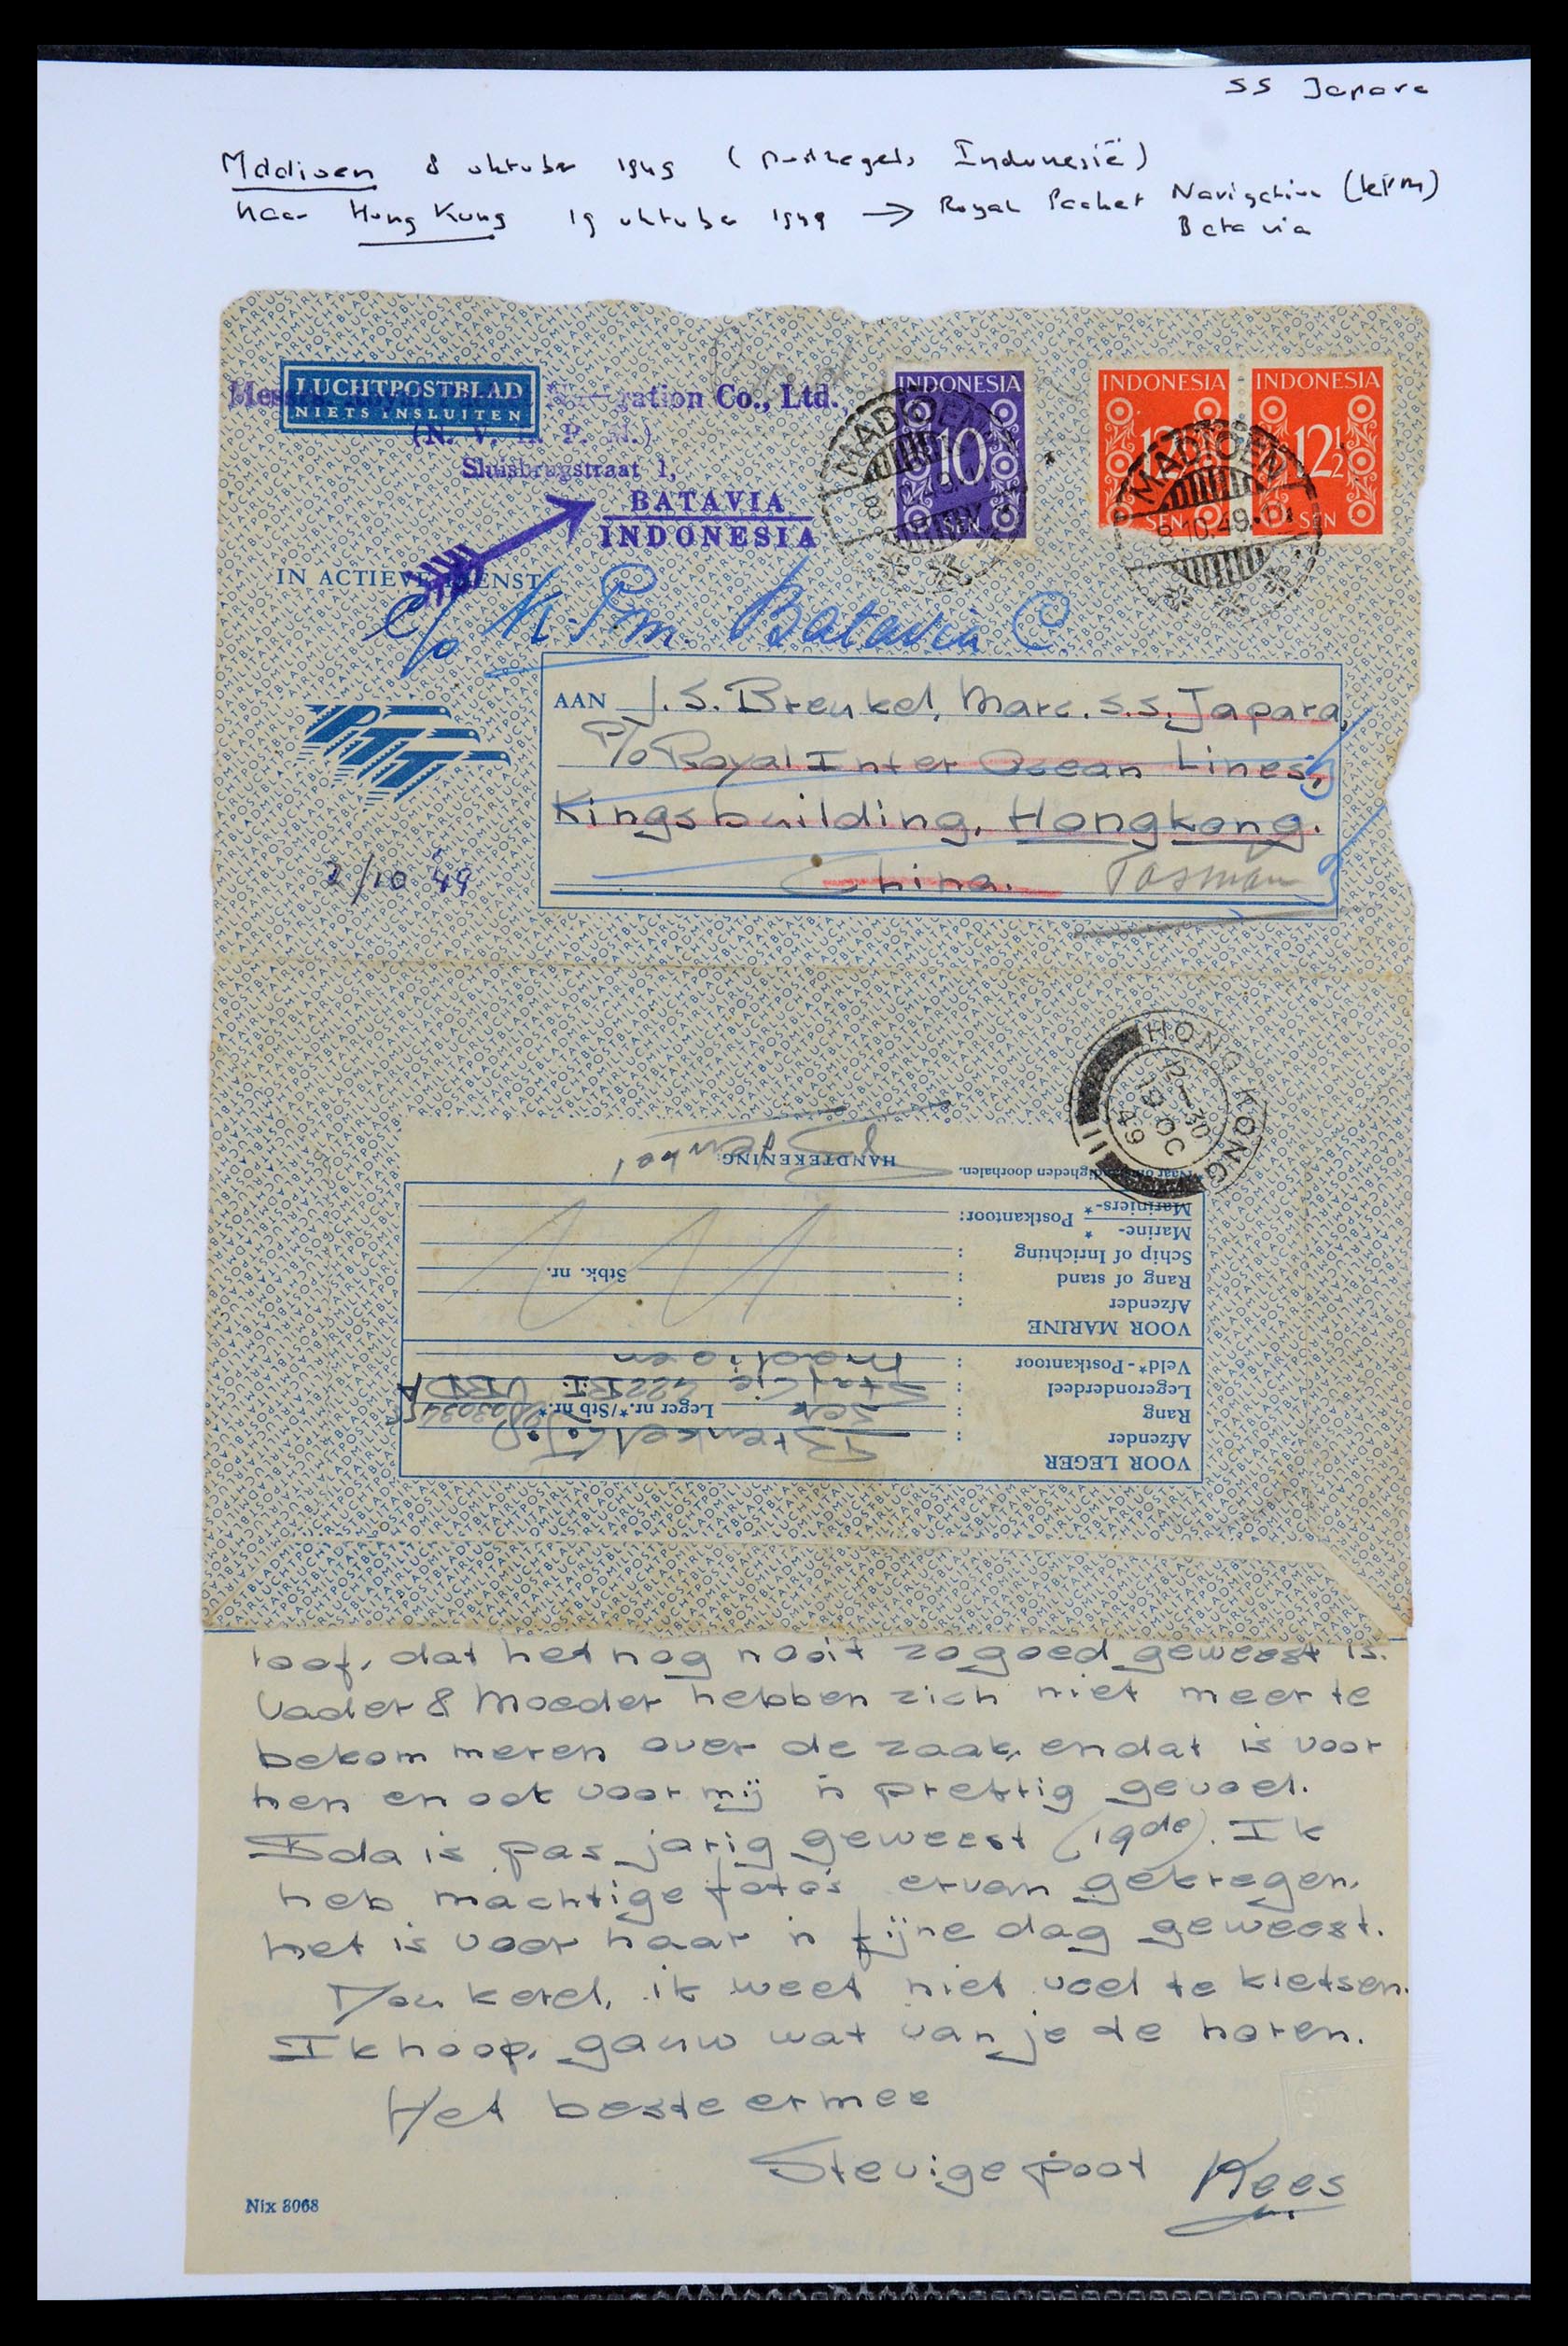 SS Japara
Madioen 8 oktober 1949 (Postzegels Indonesië)
naar Hong Kong 19 oktober 1949 → Royal Packet Navigation (KPM)
Batavia
LUCHTPOSTBLAD
NIETS INSLUITEN
Messrs. Royal Navigation Co., Ltd.,
(N. V. K. P. M.)
Sluisbrugstraat 1,
BATAVIA
INDONESIA
INDONESIA
10
SEN
INDONESIA
12½
SEN
INDONESIA
12½
SEN
MADIOEN
8.10.49
MADIOEN
8.10.49
IN ACTIEVE DIENST
c/o K.P.M. Batavia C.
AAN J.S. Brenkel, Marc. S.S. Japara,
P/o Royal Inter Ocean Lines,
Kingsbuilding, Hongkong.
China. Tasman
PTT
2/10 '49
HONG KONG
12-30
19 OC
49
HANDTEKENING:
*Naar omstandigheden doorhalen.
Mariniers-*
Marine- * Postkantoor:
Schip of Inrichting :
Rang of stand : Stbk. nr.
Afzender :
VOOR MARINE
Veld*-Postkantoor : Madioen
Legeronderdeel : Staf Cie 422 R.I. VERDA
Rang : Leger nr.*/Stb nr.*
Afzender : Brenkel
VOOR LEGER
loof, dat het nog nooit zo goed geweest is.
Vader & Moeder hebben zich niet meer te
bekommeren over de zaak, en dat is voor
hen en ook voor mij 'n prettig gevoel.
Ida is pas jarig geweest (19de). Ik
heb machtige foto's ervan gekregen.
Het is voor haar 'n fijne dag geweest.
Nou kerel, ik weet niet veel te kletsen.
Ik hoop, gauw wat van je te horen.
Het beste ermee
Stevige poot Kees
Nix 8068